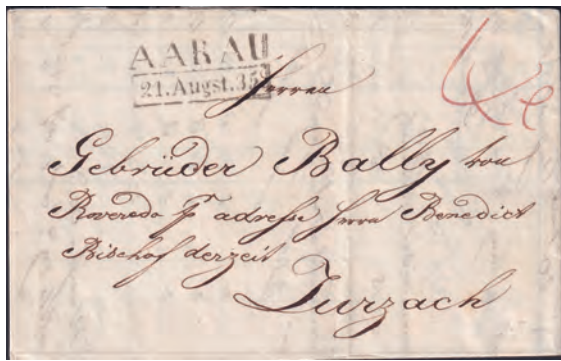 AARAU
21. Augst. 35
Herren
Gebrüder Bally von
Roveredo pr adresse Herrn Benedict
Bischof derzeit
Zurzach